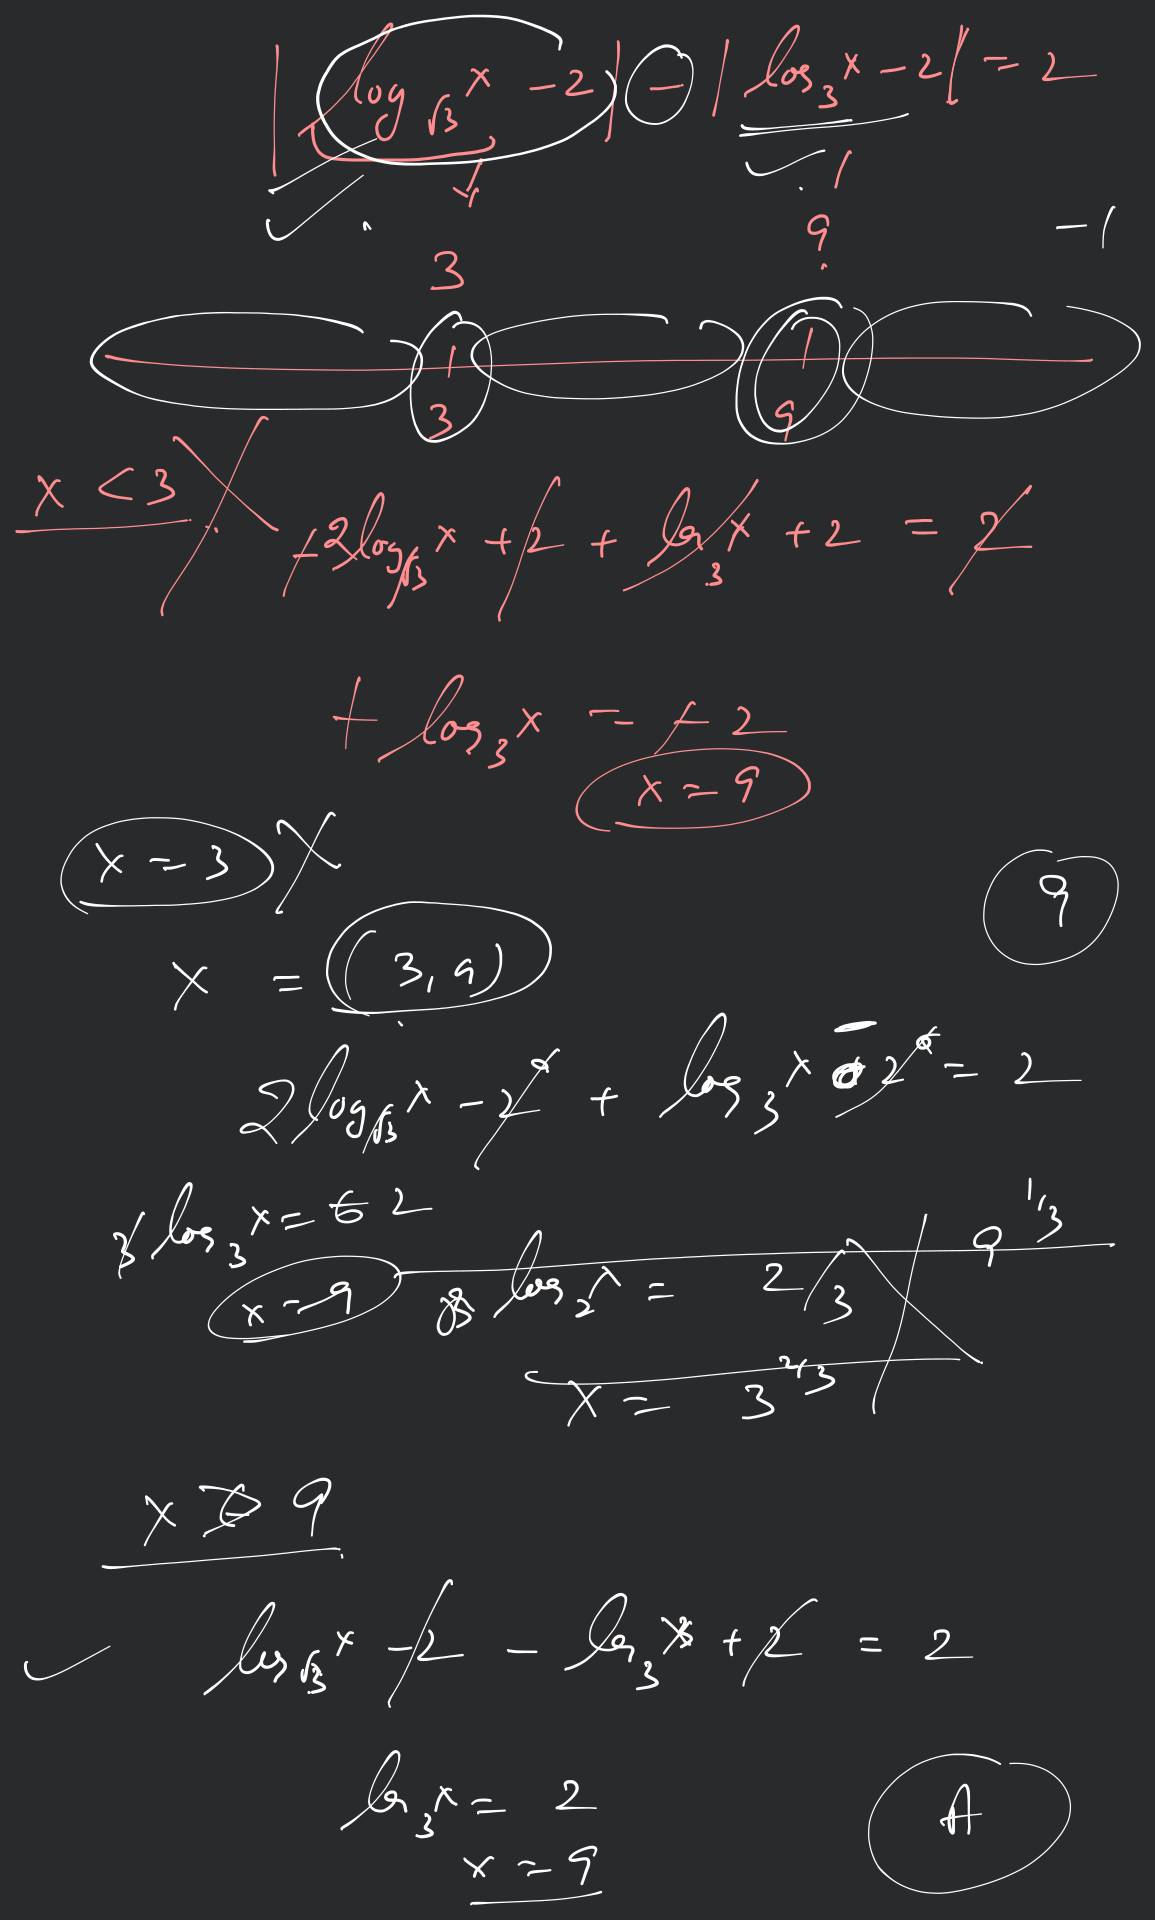 |log_√3 x - 2| - |log_3 x - 2| = 2
1 1
3 9
-1
1 1
3 9
x < 3
+2log_√3 x + 2 + log_3 x + 2 = 2
+ log_3 x = + 2
x = 9
x = 3
9
x = (3, 9)
2log_√3 x - 2 + log_3 x - 2 = 2
3 log_3 x = 6 2
9^1/3
x = 9 or log_2 x = 2/3
x = 3^2/3
x > 9
log_√3 x - 2 - log_3 x + 2 = 2
log_3 x = 2
A
x = 9